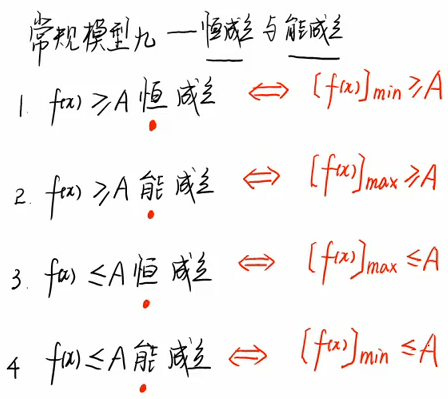 常规模型九 — 恒成立与能成立
1. f(x) ≥ A 恒成立 ⟺ [f(x)]min ≥ A
2. f(x) ≥ A 能成立 ⟺ [f(x)]max ≥ A
3. f(x) ≤ A 恒成立 ⟺ [f(x)]max ≤ A
4 f(x) ≤ A 能成立 ⟺ [f(x)]min ≤ A